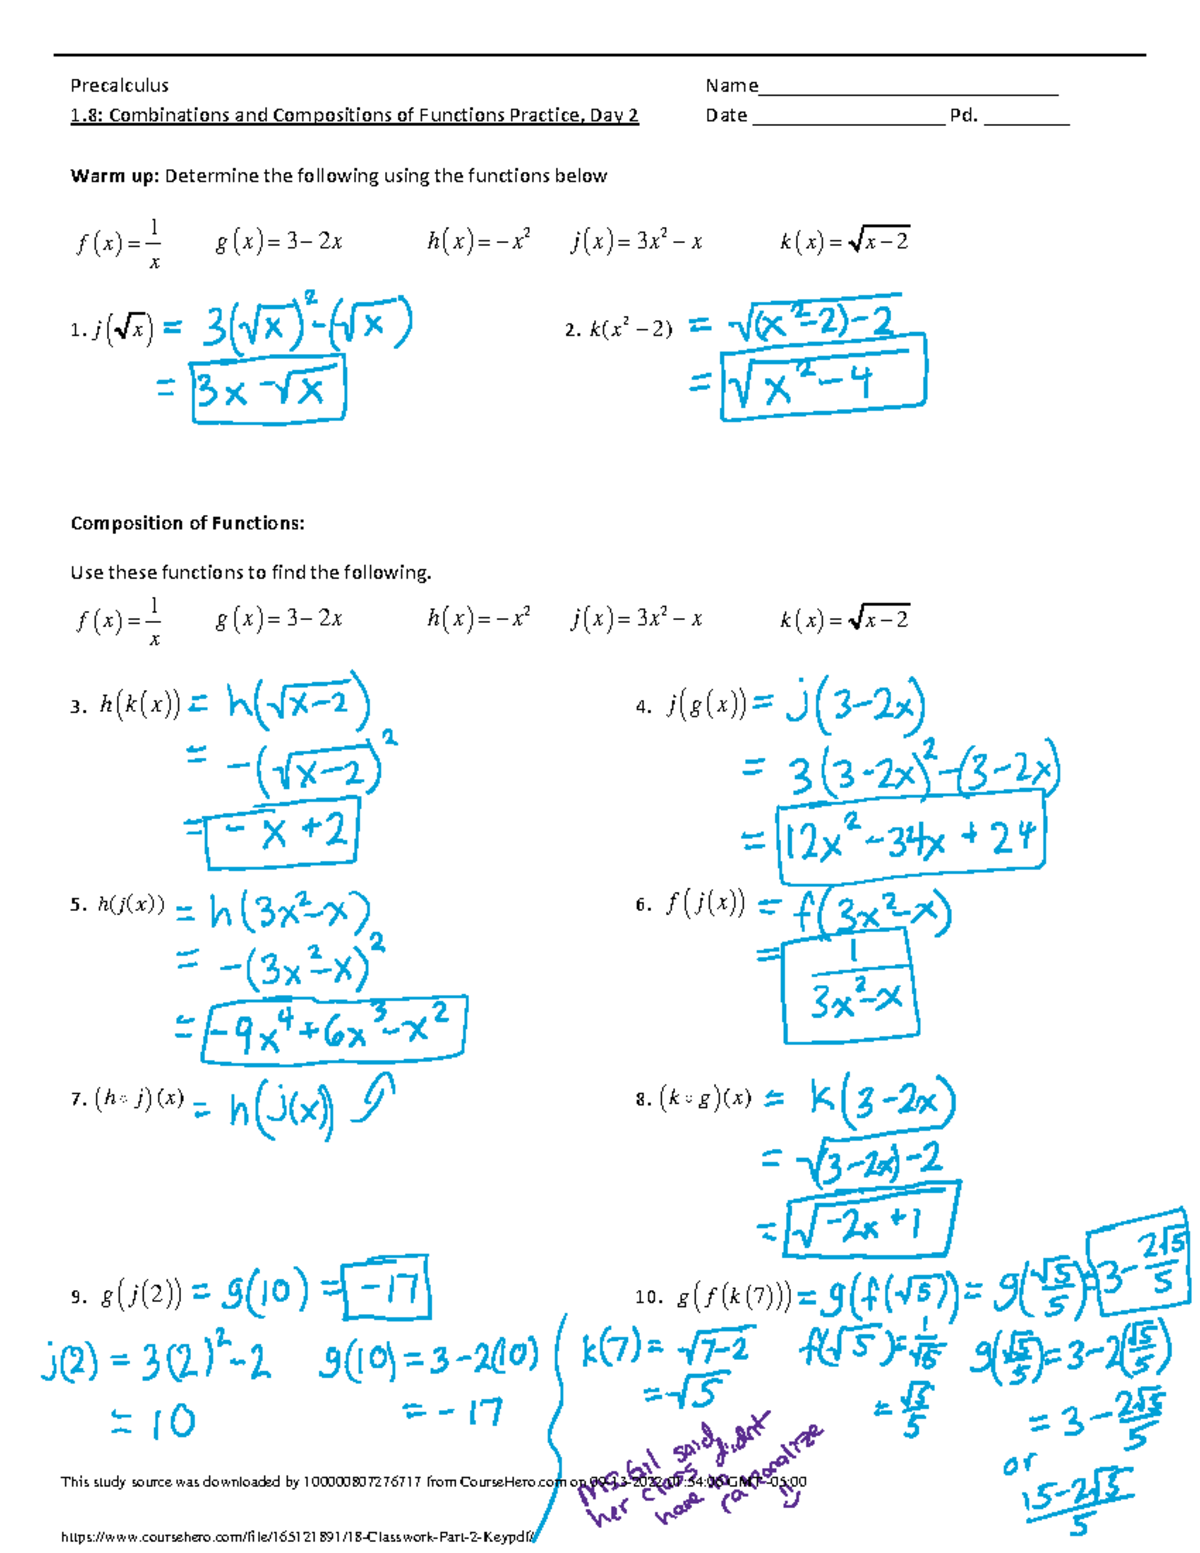 Precalculus Name
1.8: Combinations and Compositions of Functions Practice, Day 2 Date Pd.
Warm up: Determine the following using the functions below
f(x) = 1/x g(x) = 3 − 2x h(x) = −x² j(x) = 3x² − x k(x) = √(x − 2)
1. j(√x) = 3(√x)² − (√x)
= 3x − √x
2. k(x² − 2) = √((x² − 2) − 2)
= √(x² − 4)
Composition of Functions:
Use these functions to find the following.
f(x) = 1/x g(x) = 3 − 2x h(x) = −x² j(x) = 3x² − x k(x) = √(x − 2)
3. h(k(x)) = h(√(x − 2))
= −(√(x − 2))²
= −x + 2
4. j(g(x)) = j(3 − 2x)
= 3(3 − 2x)² − (3 − 2x)
= 12x² − 34x + 24
5. h(j(x)) = h(3x² − x)
= −(3x² − x)²
= −9x⁴ + 6x³ − x²
6. f(j(x)) = f(3x² − x)
= 1/(3x² − x)
7. (h ∘ j)(x) = h(j(x))
8. (k ∘ g)(x) = k(3 − 2x)
= √((3 − 2x) − 2)
= √(−2x + 1)
9. g(j(2)) = g(10) = −17
j(2) = 3(2)² − 2
= 10
g(10) = 3 − 2(10)
= −17
10. g(f(k(7))) = g(f(√5)) = g(√5/5) = 3 − 2√5/5
k(7) = √(7 − 2)
= √5
f(√5) = 1/√5
= √5/5
g(√5/5) = 3 − 2(√5/5)
= 3 − 2√5/5
or
15 − 2√5/5
Ms Gail said
her class didnt
have to
rationalize
This study source was downloaded by 100000807276717 from CourseHero.com on 09-13-2022 07:54:06 GMT -05:00
https://www.coursehero.com/file/165121891/18-Classwork-Part-2-Keypdf/